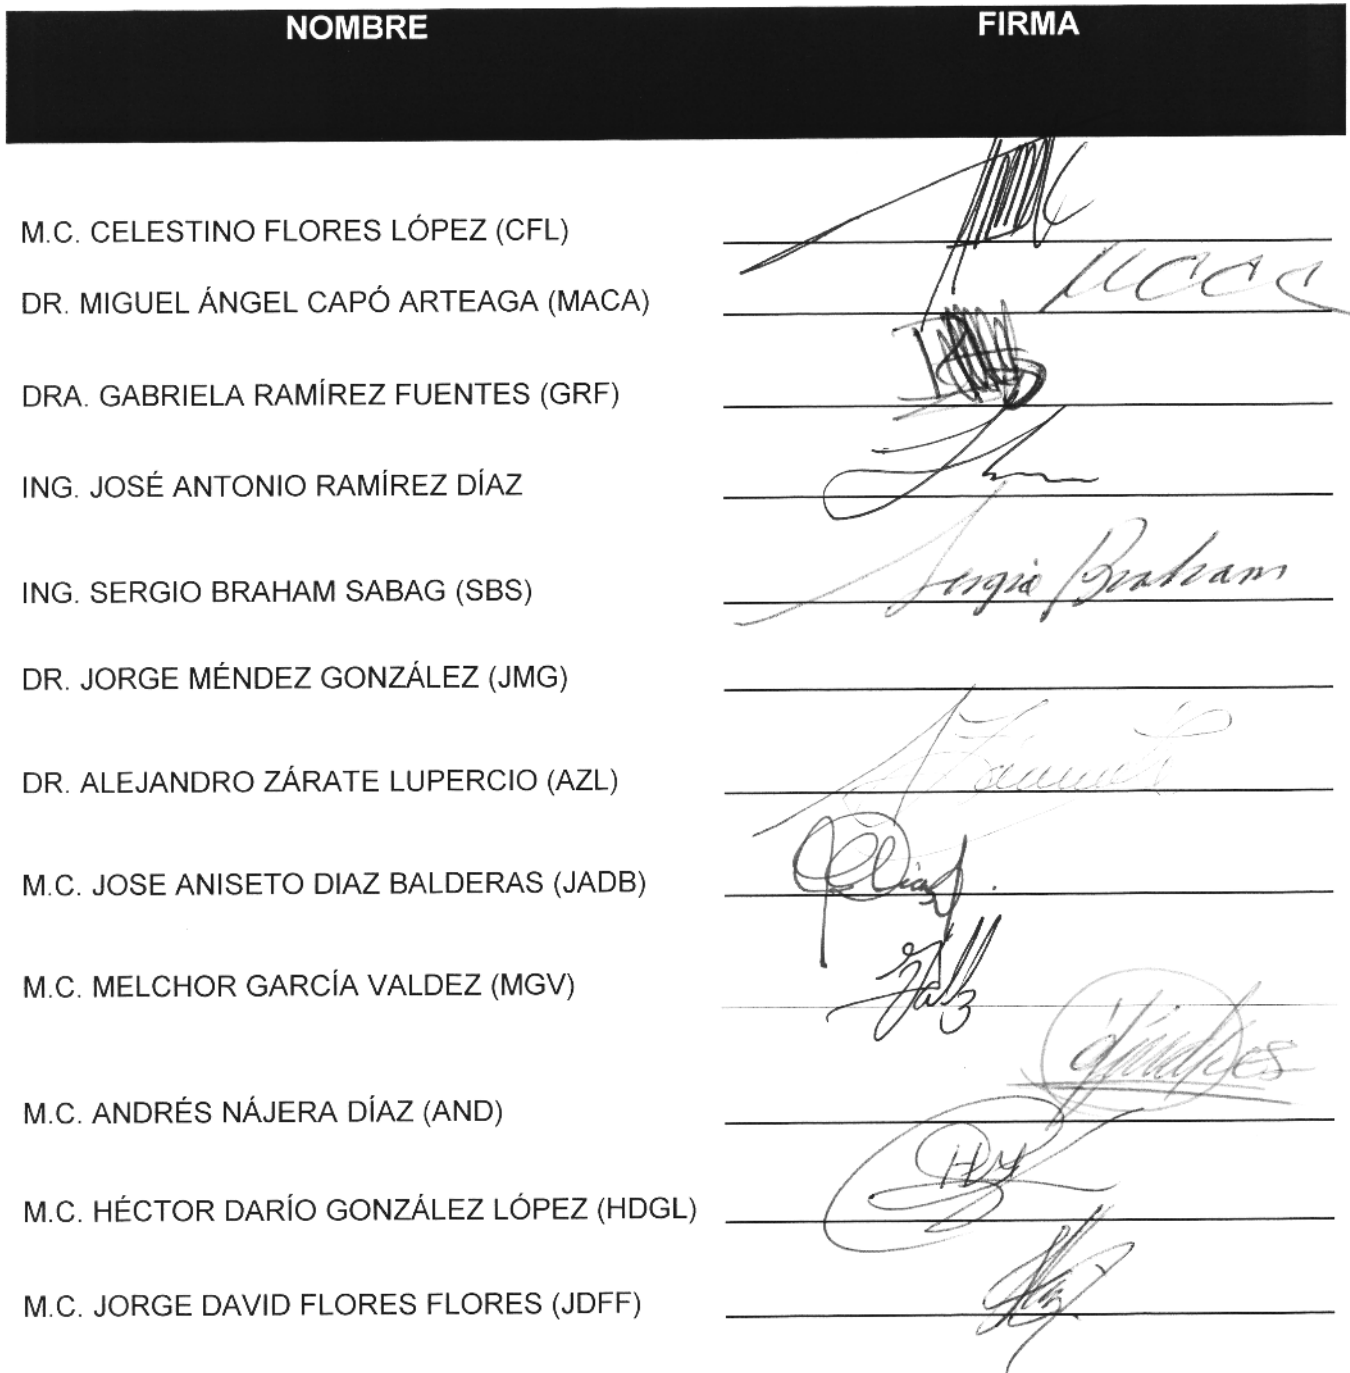 NOMBRE FIRMA
M.C. CELESTINO FLORES LÓPEZ (CFL)
DR. MIGUEL ÁNGEL CAPÓ ARTEAGA (MACA)
DRA. GABRIELA RAMÍREZ FUENTES (GRF)
ING. JOSÉ ANTONIO RAMÍREZ DÍAZ
ING. SERGIO BRAHAM SABAG (SBS) Sergio Braham
DR. JORGE MÉNDEZ GONZÁLEZ (JMG)
DR. ALEJANDRO ZÁRATE LUPERCIO (AZL)
M.C. JOSE ANISETO DIAZ BALDERAS (JADB)
M.C. MELCHOR GARCÍA VALDEZ (MGV)
M.C. ANDRÉS NÁJERA DÍAZ (AND)
M.C. HÉCTOR DARÍO GONZÁLEZ LÓPEZ (HDGL)
M.C. JORGE DAVID FLORES FLORES (JDFF)